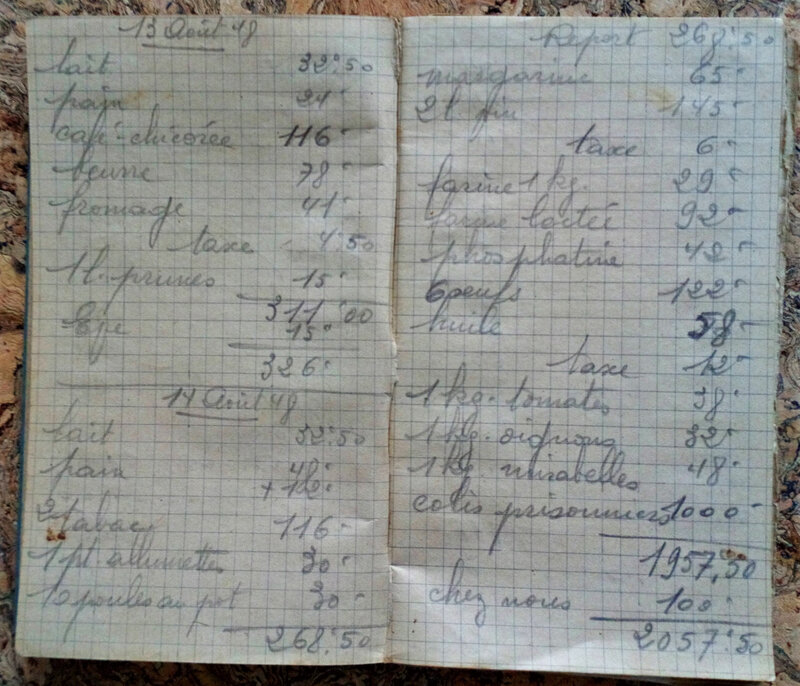 13 Août 48
lait 32:50
pain 24-
café-chicorée 116-
beurre 78-
fromage 41-
taxe 4:50
1l. prunes 15-
311:00
15-
326-
14 Août 48
lait 32:50
pain 48-
+ 12-
2 tabac 116-
1 pt allumettes 30-
10 poules au pot 30-
268:50
Report 268:50
margarine 65-
2l vin 145-
taxe 6-
farine 1 kg. 29-
farine lactée 92-
phosphatine 42-
6 oeufs 122-
huile 58-
taxe 12-
1 kg. tomates 38-
1 kg. oignons 32-
1 kg mirabelles 48-
colis prisonniers 1000-
1957,50
chez nous 100-
2057:50